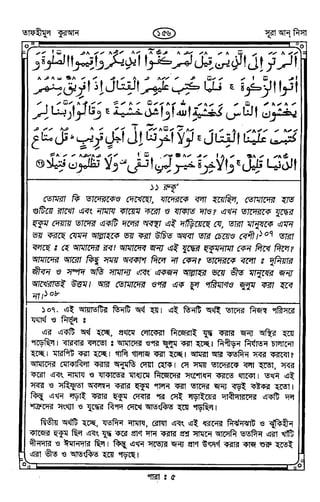 তাফহীমুল কুরআন
১৫৬
সূরা আন্ নিসা
اَلَمْ تَرَ اِلَى الَّذِيْنَ قِيْلَ لَهُمْ كُفُّوْٓا اَيْدِيَكُمْ وَاَقِيْمُوا الصَّلٰوةَ وَ
اٰتُوا الزَّكٰوةَ ۚ فَلَمَّا كُتِبَ عَلَيْهِمُ الْقِتَالُ اِذَا فَرِيْقٌ مِّنْهُمْ
يَخْشَوْنَ النَّاسَ كَخَشْيَةِ اللّٰهِ اَوْ اَشَدَّ خَشْيَةً ۚ وَقَالُوْا رَبَّنَا لِمَ
كَتَبْتَ عَلَيْنَا الْقِتَالَ ۚ لَوْلَآ اَخَّرْتَنَآ اِلٰٓى اَجَلٍ قَرِيْبٍ ۗ قُلْ مَتَاعُ
الدُّنْيَا قَلِيْلٌ ۚ وَالْاٰخِرَةُ خَيْرٌ لِّمَنِ اتَّقٰى ۗ وَلَا تُظْلَمُوْنَ فَتِيْلًا
১১ রুকূ'
তোমরা কি তাদেরকেও দেখেছো, যাদেরকে বলা হয়েছিল, তোমাদের হাত
গুটিয়ে রাখো এবং নামায কায়েম করো ও যাকাত দাও? এখন তাদেরকে যুদ্ধের
হুকুম দেয়ায় তাদের একটি দলের অবস্থা এই দাঁড়িয়েছে যে, তারা মানুষকে এমন
ভয় করছে যেমন আল্লাহকে ভয় করা উচিত অথবা তার চেয়েও বেশী।১০৭ তারা
বলছে : হে আমাদের রব! আমাদের জন্য এই যুদ্ধের হুকুমনামা কেন লিখে দিলে?
আমাদের আরো কিছু সময় অবকাশ দিলে না কেন? তাদেরকে বলো : দুনিয়ার
জীবন ও সম্পদ অতি সামান্য এবং একজন আল্লাহর ভয়ে ভীত মানুষের জন্য
আখেরাতই উত্তম। আর তোমাদের ওপর এক চুল পরিমাণও জুলুম করা হবে
না।১০৮
১০৭. এই আয়াতটির তিনটি অর্থ হয়। এই তিনটি অর্থই তাদের নিজস্ব পরিসরে
যথার্থ ও নির্ভুল :
এর একটি অর্থ হচ্ছে, প্রথমে লোকেরা নিজেরাই যুদ্ধ করার জন্য অস্থির হয়ে
পড়েছিল। বারবার বলতো : আমাদের ওপর জুলুম করা হচ্ছে। নিপীড়ন নির্যাতন চালানো
হচ্ছে। মারপিট করা হচ্ছে। গালি গালাজ করা হচ্ছে। আমরা আর কতদিন সবর করবো?
আমাদের মোকাবিলা করার অনুমতি দেয়া হোক। সে সময় তাদেরকে বলা হতো, সবর
করো এবং নামায ও যাকাতের মাধ্যমে নিজেদের সংশোধন করতে থাকো। তখন এই
সবর ও সহিষ্ণুতা অবলম্বন করার হুকুম পালন করা তাদের জন্য বড়ই কষ্টকর হতো।
কিন্তু এখন লড়াই করার হুকুম দেবার পর সেই লড়াইয়ের দাবীদারদের একটি দল
শত্রুদের সংখ্যা ও যুদ্ধের বিপদ দেখে আতংকিত হয়ে পড়ছিল।
দ্বিতীয় অর্থটি হচ্ছে, যতদিন নামায, রোযা এবং এই ধরনের নির্ঝনঝাট ও ঝুঁকিহীন
কাজের হুকুম ছিল এবং যুদ্ধ করে প্রাণ দান করার প্রশ্ন সামনে আসেনি ততদিন এরা খাঁটি
দীনদার ও ঈমানদার ছিল। কিন্তু এখন সত্যের জন্য প্রাণ উৎসর্গ করার কাজ শুরু হতেই
এরা ভীত ও আতংকিত হয়ে পড়ছে।
পারা : ৫